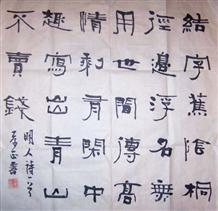 結字蕉陰桐
徑邊浮名無
用世間傳高
情剩有閑中
趣寫出青山
不賣錢
明人詩一首